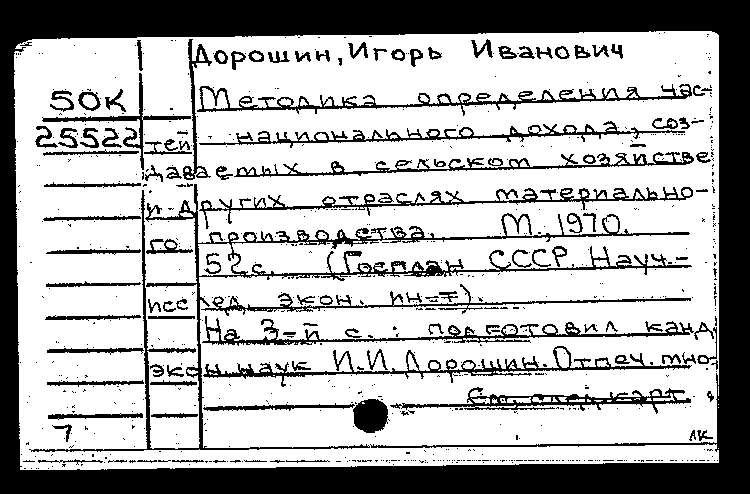 Дорошин, Игорь Иванович
50К Методика определения час-
25522 тей национального дохода, соз-
даваемых в сельском хозяйстве
и других отраслях материально-
го производства. М., 1970.
52 с. (Госплан СССР. Науч.-
исслед. экон. ин-т).
На 3-й с.: подготовил канд.
экон. наук И.И. Дорошин. Отпеч. мно-
См. след. карт.
7
лк